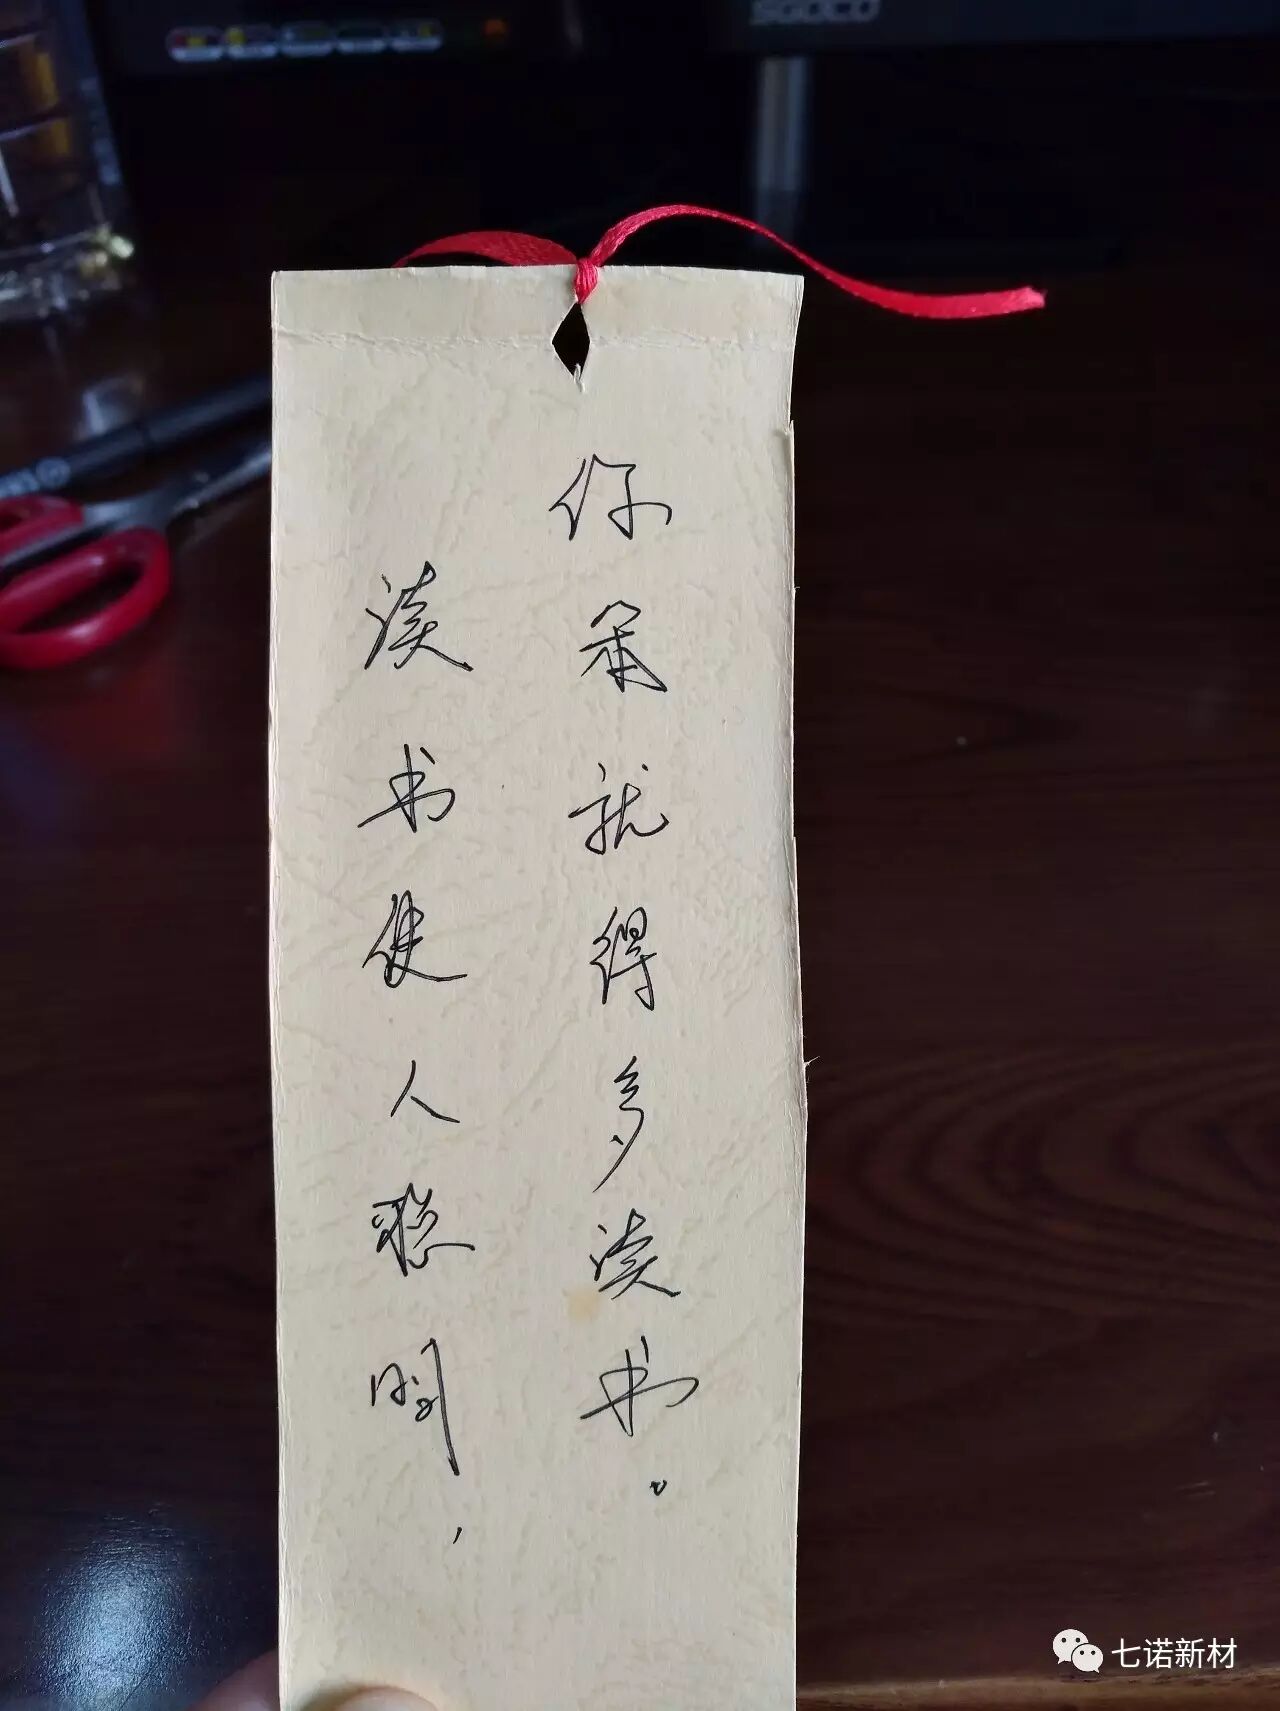 读书使人聪明，
你笨就得多读书。
SGOCO
七诺新材